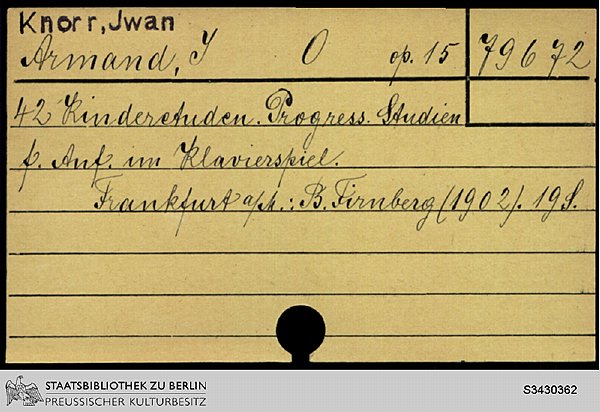 Knorr, Jwan
Armand, J O op. 15 79672
42 Kinderetuden. Progress. Studien
f. Anf. im Klavierspiel.
Frankfurt a/M.: B. Firnberg (1902). 19 S.
STAATSBIBLIOTHEK ZU BERLIN
PREUSSISCHER KULTURBESITZ
S3430362